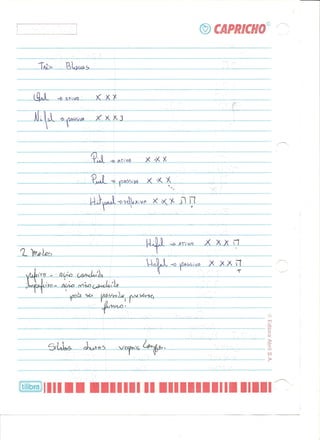 CAPRICHO
Três Blocos
Qal → ativa X X X
Nifal → passiva X X X נ
Piel → ativa X X X
Pual → passiva X X X
Hitpael → reflexiva X X X ה ת
Hifil → ativa X X X ה
2 modos
Hofal → passiva X X X ה
perfeito - ação concluída
imperfeito - ação não concluída
pode ser passado, presente,
futuro.
Sílabas abertas vogais longas.
tilibra
© Editora Abril S.A.